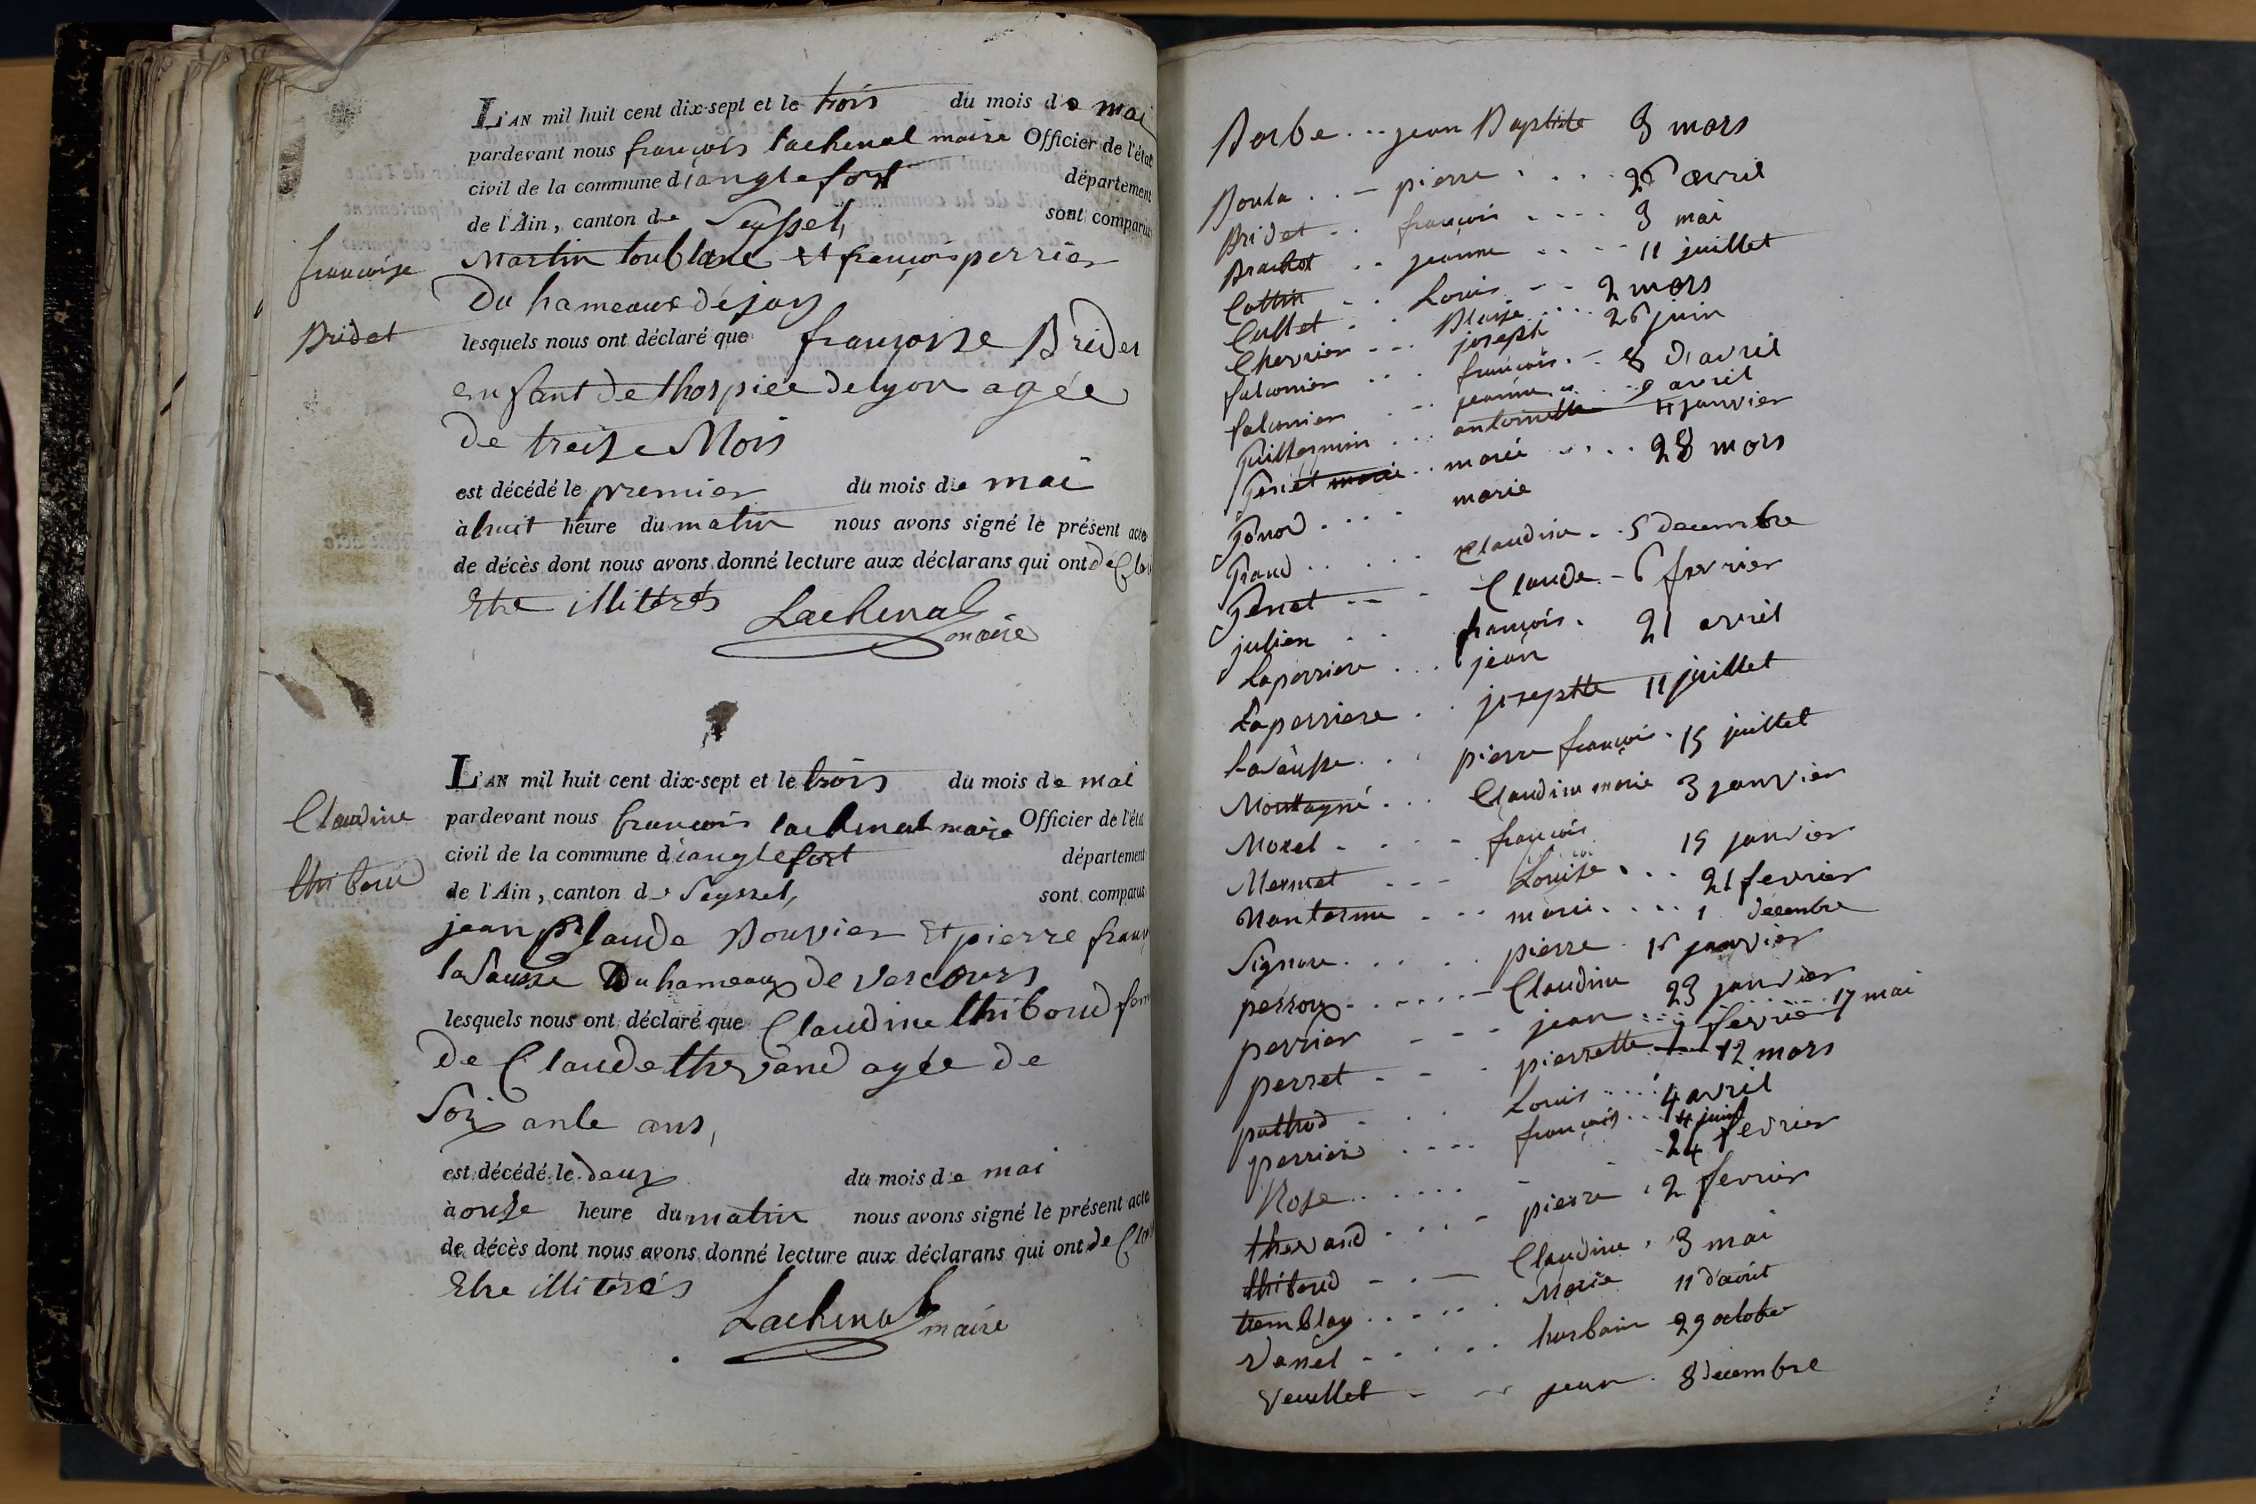 L'AN mil huit cent dix-sept et le trois du mois de mai
pardevant nous françois lachenal maire Officier de l'état
civil de la commune d'anglefort département
de l'Ain, canton de Seyssel, sont comparus
Martin toublanc et françois perrier
Du hameaux dejou
lesquels nous ont déclaré que françoise Bridet
enfant de thospice de lyon agée
De treize Mois
est décédé le premier du mois de mai
à huit heure du matin nous avons signé le présent acte
de décès dont nous avons donné lecture aux déclarans qui ont déCla
Etre illitérés
Lachenal
maire
françoise
Bridet
L'AN mil huit cent dix-sept et le trois du mois de mai
pardevant nous françois lachenal maire Officier de l'état
civil de la commune d'anglefort département
de l'Ain, canton de Seyssel, sont comparus
jean Claude Bouvier Et pierre franç
lavausse Du hameaux de vercours
lesquels nous ont déclaré que Claudine thiboud fem
De Claude thevand agée de
Soixante ans,
est décédé le deux du mois de mai
à onze heure du matin nous avons signé le présent acte
de décès dont nous avons donné lecture aux déclarans qui ont de Cla
Etre illitérés
Lachenal
maire
Claudine
thiboud
Barbe jean Baptiste 3 mars
Boula pierre 26 avril
Bridet françois 3 mai
Brachot jeanne 11 juillet
Cottin Louis 2 mars
Cullet Blaise 26 juin
Chevrier joseph 8 d'avril
falconier françois 9 avril
falconier jeanne 4 janvier
Guillermin antoinette
Genet marie marie 28 mars
Génod marie
Grand Claudine 5 decembre
Genet Claude 6 fevrier
julien françois 21 avril
Laperriere jean
Laperriere josephte 11 juillet
Lavausse pierre françois 15 juillet
Montagné Claudine marie 3 janvier
Morel françois 15 janvier
Mermet Louise 21 fevrier
Nanterme marie 1 décembre
Signou pierre 16 janvier
perroux Claudine 23 janvier
perrier jean fevrier 17 mai
perret pierrette 12 mars
puthod Louis 4 avril
perrier françois 14 juin
Rose 24 fevrier
thevand pierre 2 fevrier
thiboud Claudine 3 mai
tremblay Marie 11 d'aout
Vanel hurbain 29 octobre
Veuillet jean 8 decembre